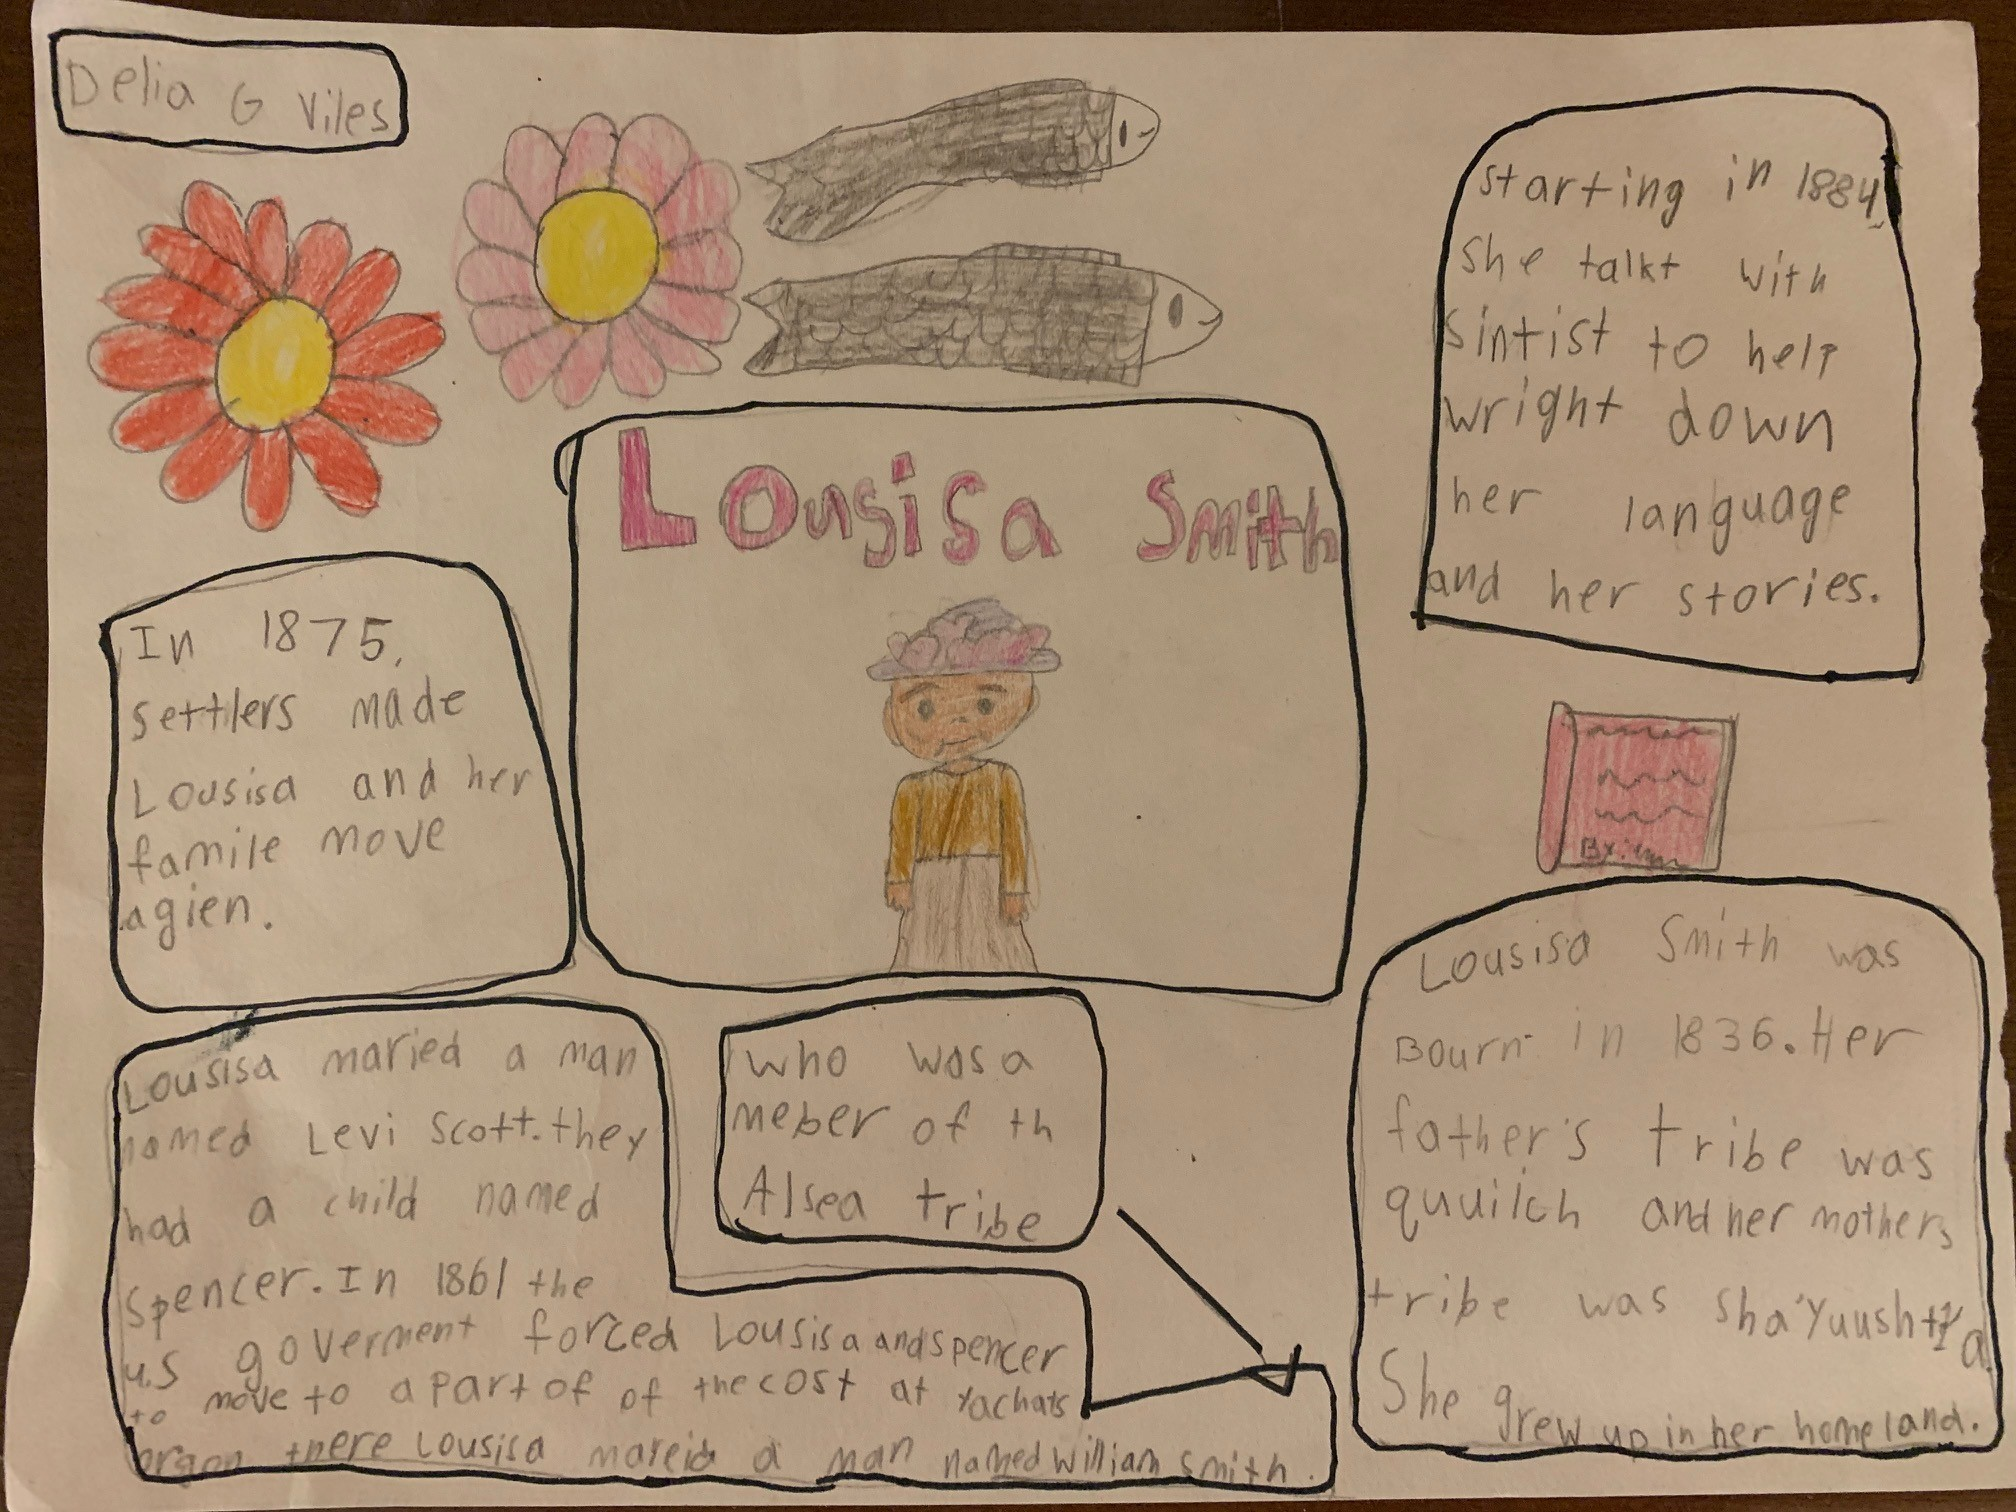 Delia G Viles
Lousisa Smith
starting in 1884,
she talkt with
sintist to help
wright down
her language
and her stories.
In 1875,
settlers made
Lousisa and her
famile move
agien.
By:
Lousisa Smith was
Bourn in 1836. Her
father's tribe was
quuilch and her mothers
tribe was sha'Yuusht
She grew up in her homeland.
Lousisa maried a man
named Levi Scott. they
had a child named
Spencer. In 1861 the
u.s goverment forced Lousisa and spencer
to move to a part of of the cost at Yachats
orgon there Lousisa mareid a man named william smith.
who was a
meber of th
Alsea tribe